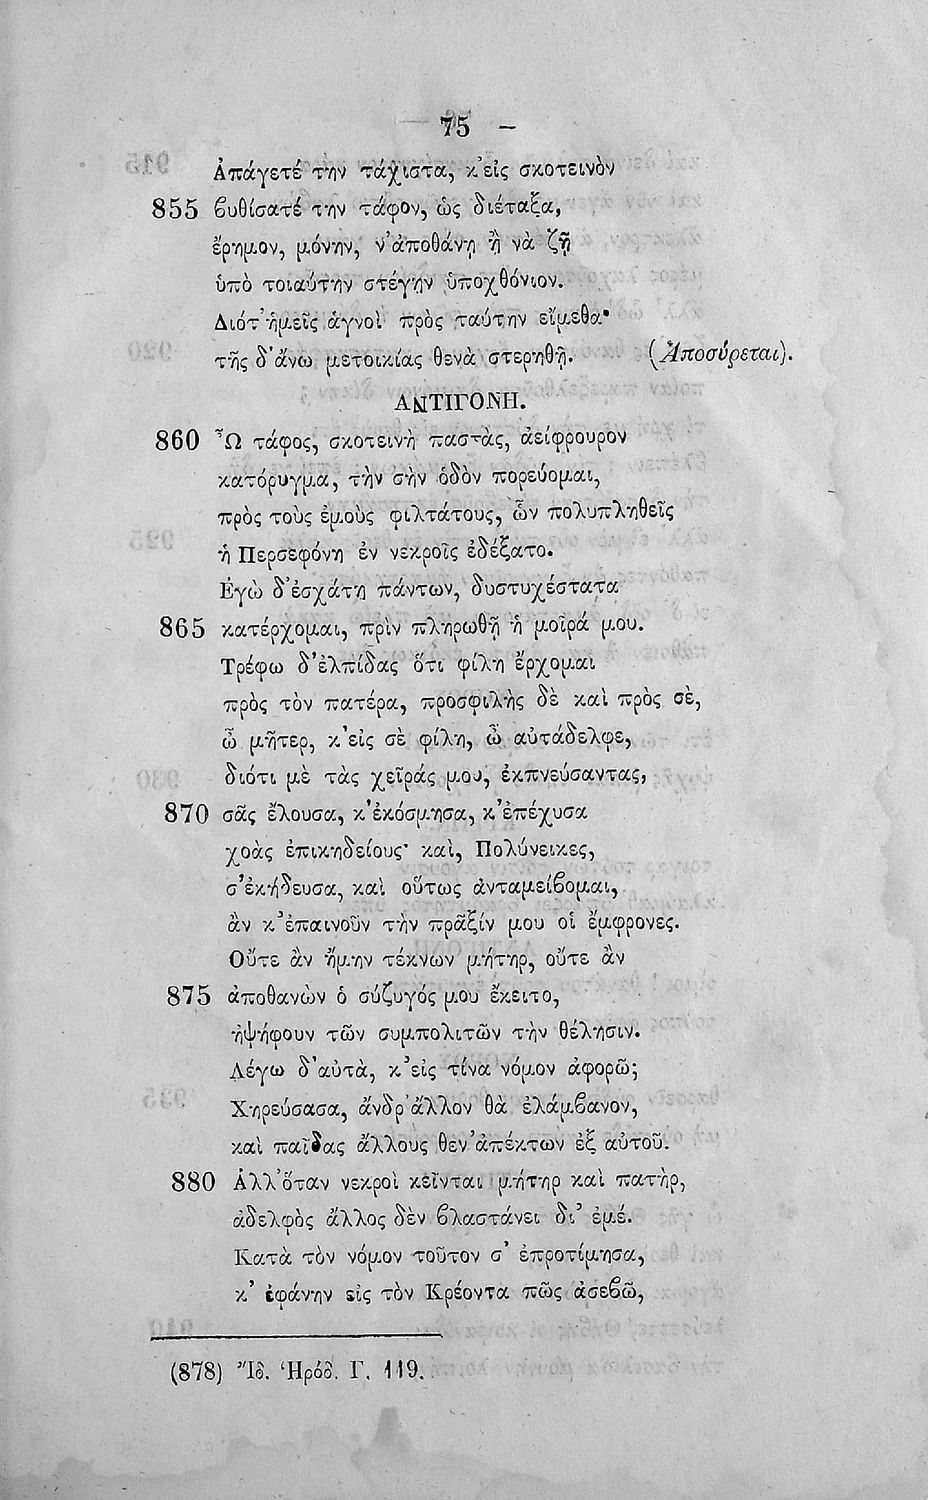 75 –
Ἀπάγετέ την τάχιστα, κ'εἰς σκοτεινὸν
855 βυθίσατέ την τάφον, ὡς διέταξα,
ἔρημον, μόνην, ν'ἀποθάνῃ ἢ νὰ ζῇ
ὑπὸ τοιαύτην στέγην ὑποχθόνιον.
Διότ'ἡμεῖς ἁγνοὶ πρὸς ταύτην εἴμεθα·
τῆς δ'ἄνω μετοικίας θενὰ στερηθῇ. (Ἀποσύρεται).
ΑΝΤΙΓΟΝΗ.
860 Ὦ τάφος, σκοτεινὴ παστὰς, ἀείφρουρον
κατόρυγμα, τὴν σὴν ὁδὸν πορεύομαι,
πρὸς τοὺς ἐμοὺς φιλτάτους, ὧν πολυπληθεῖς
ἡ Περσεφόνη ἐν νεκροῖς ἐδέξατο.
Ἐγὼ δ'ἐσχάτη πάντων, δυστυχέστατα
865 κατέρχομαι, πρὶν πληρωθῇ ἡ μοῖρά μου.
Τρέφω δ'ἐλπίδας ὅτι φίλη ἔρχομαι
πρὸς τὸν πατέρα, προσφιλὴς δὲ καὶ πρὸς σὲ,
ὦ μῆτερ, κ'εἰς σὲ φίλη, ὦ αὐτάδελφε,
διότι μὲ τὰς χεῖράς μου, ἐκπνεύσαντας,
870 σᾶς ἔλουσα, κ'ἐκόσμησα, κ'ἐπέχυσα
χοὰς ἐπικηδείους· καὶ, Πολύνεικες,
σ'ἐκήδευσα, καὶ οὕτως ἀνταμείβομαι,
ἂν κ'ἐπαινοῦν τὴν πρᾶξίν μου οἱ ἔμφρονες.
Οὔτε ἂν ἤμην τέκνων μήτηρ, οὔτε ἂν
875 ἀποθανὼν ὁ σύζυγός μου ἔκειτο,
ἠψήφουν τῶν συμπολιτῶν τὴν θέλησιν.
Λέγω δ'αὐτὰ, κ'εἰς τίνα νόμον ἀφορῶ;
Χηρεύσασα, ἄνδρ'ἄλλον θὰ ἐλάμβανον,
καὶ παῖδας ἄλλους θεν'ἀπέκτων ἐξ αὐτοῦ.
880 Ἀλλ'ὅταν νεκροὶ κεῖνται μήτηρ καὶ πατὴρ,
ἀδελφὸς ἄλλος δὲν βλαστάνει δι' ἐμέ.
Κατὰ τὸν νόμον τοῦτον σ' ἐπροτίμησα,
κ' ἐφάνην εἰς τὸν Κρέοντα πῶς ἀσεβῶ,
(878) Ἴδ. Ἡρόδ. Γ. 119.